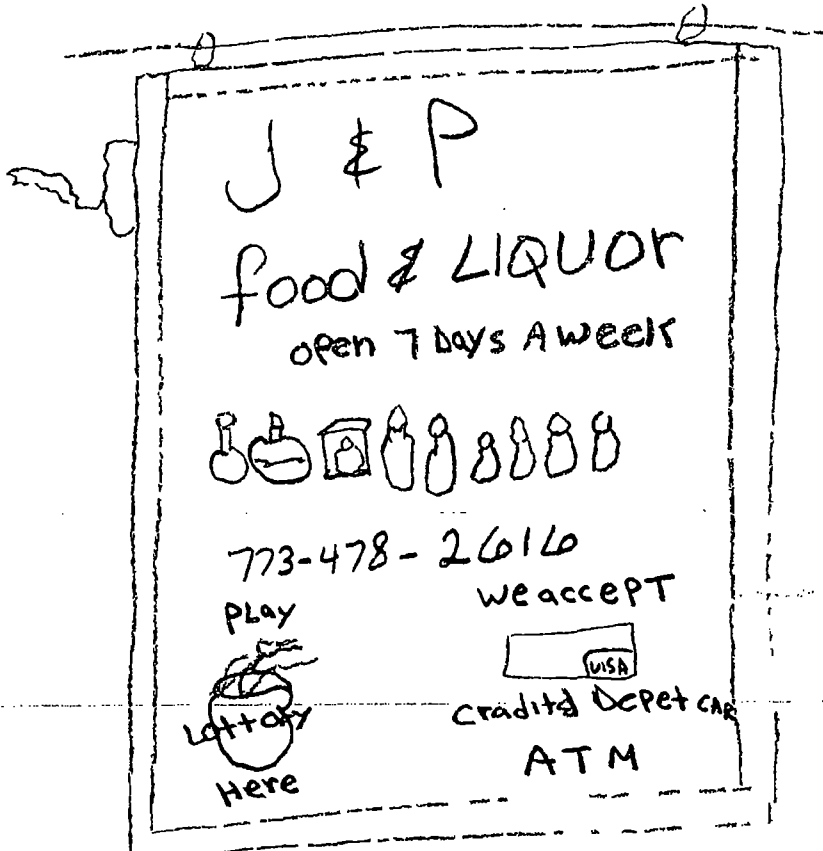 J & P
food & LIQUOR
open 7 Days A week
773-478-2616
PLay
Lottoty
Here
we accepT
VISA
Cradit & Depet CAR
ATM